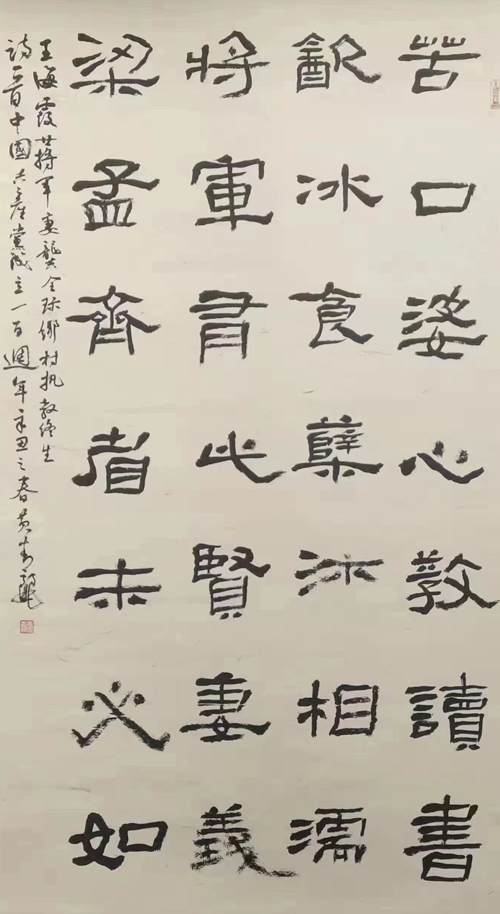 苦口婆心教讀書
飲冰食蘗沫相濡
將軍有此賢妻義
梁孟齊眉未必如
王海霞甘將軍妻龔全珍鄉村執教終生
詩一首中國共產黨成立一百週年辛丑之春黃